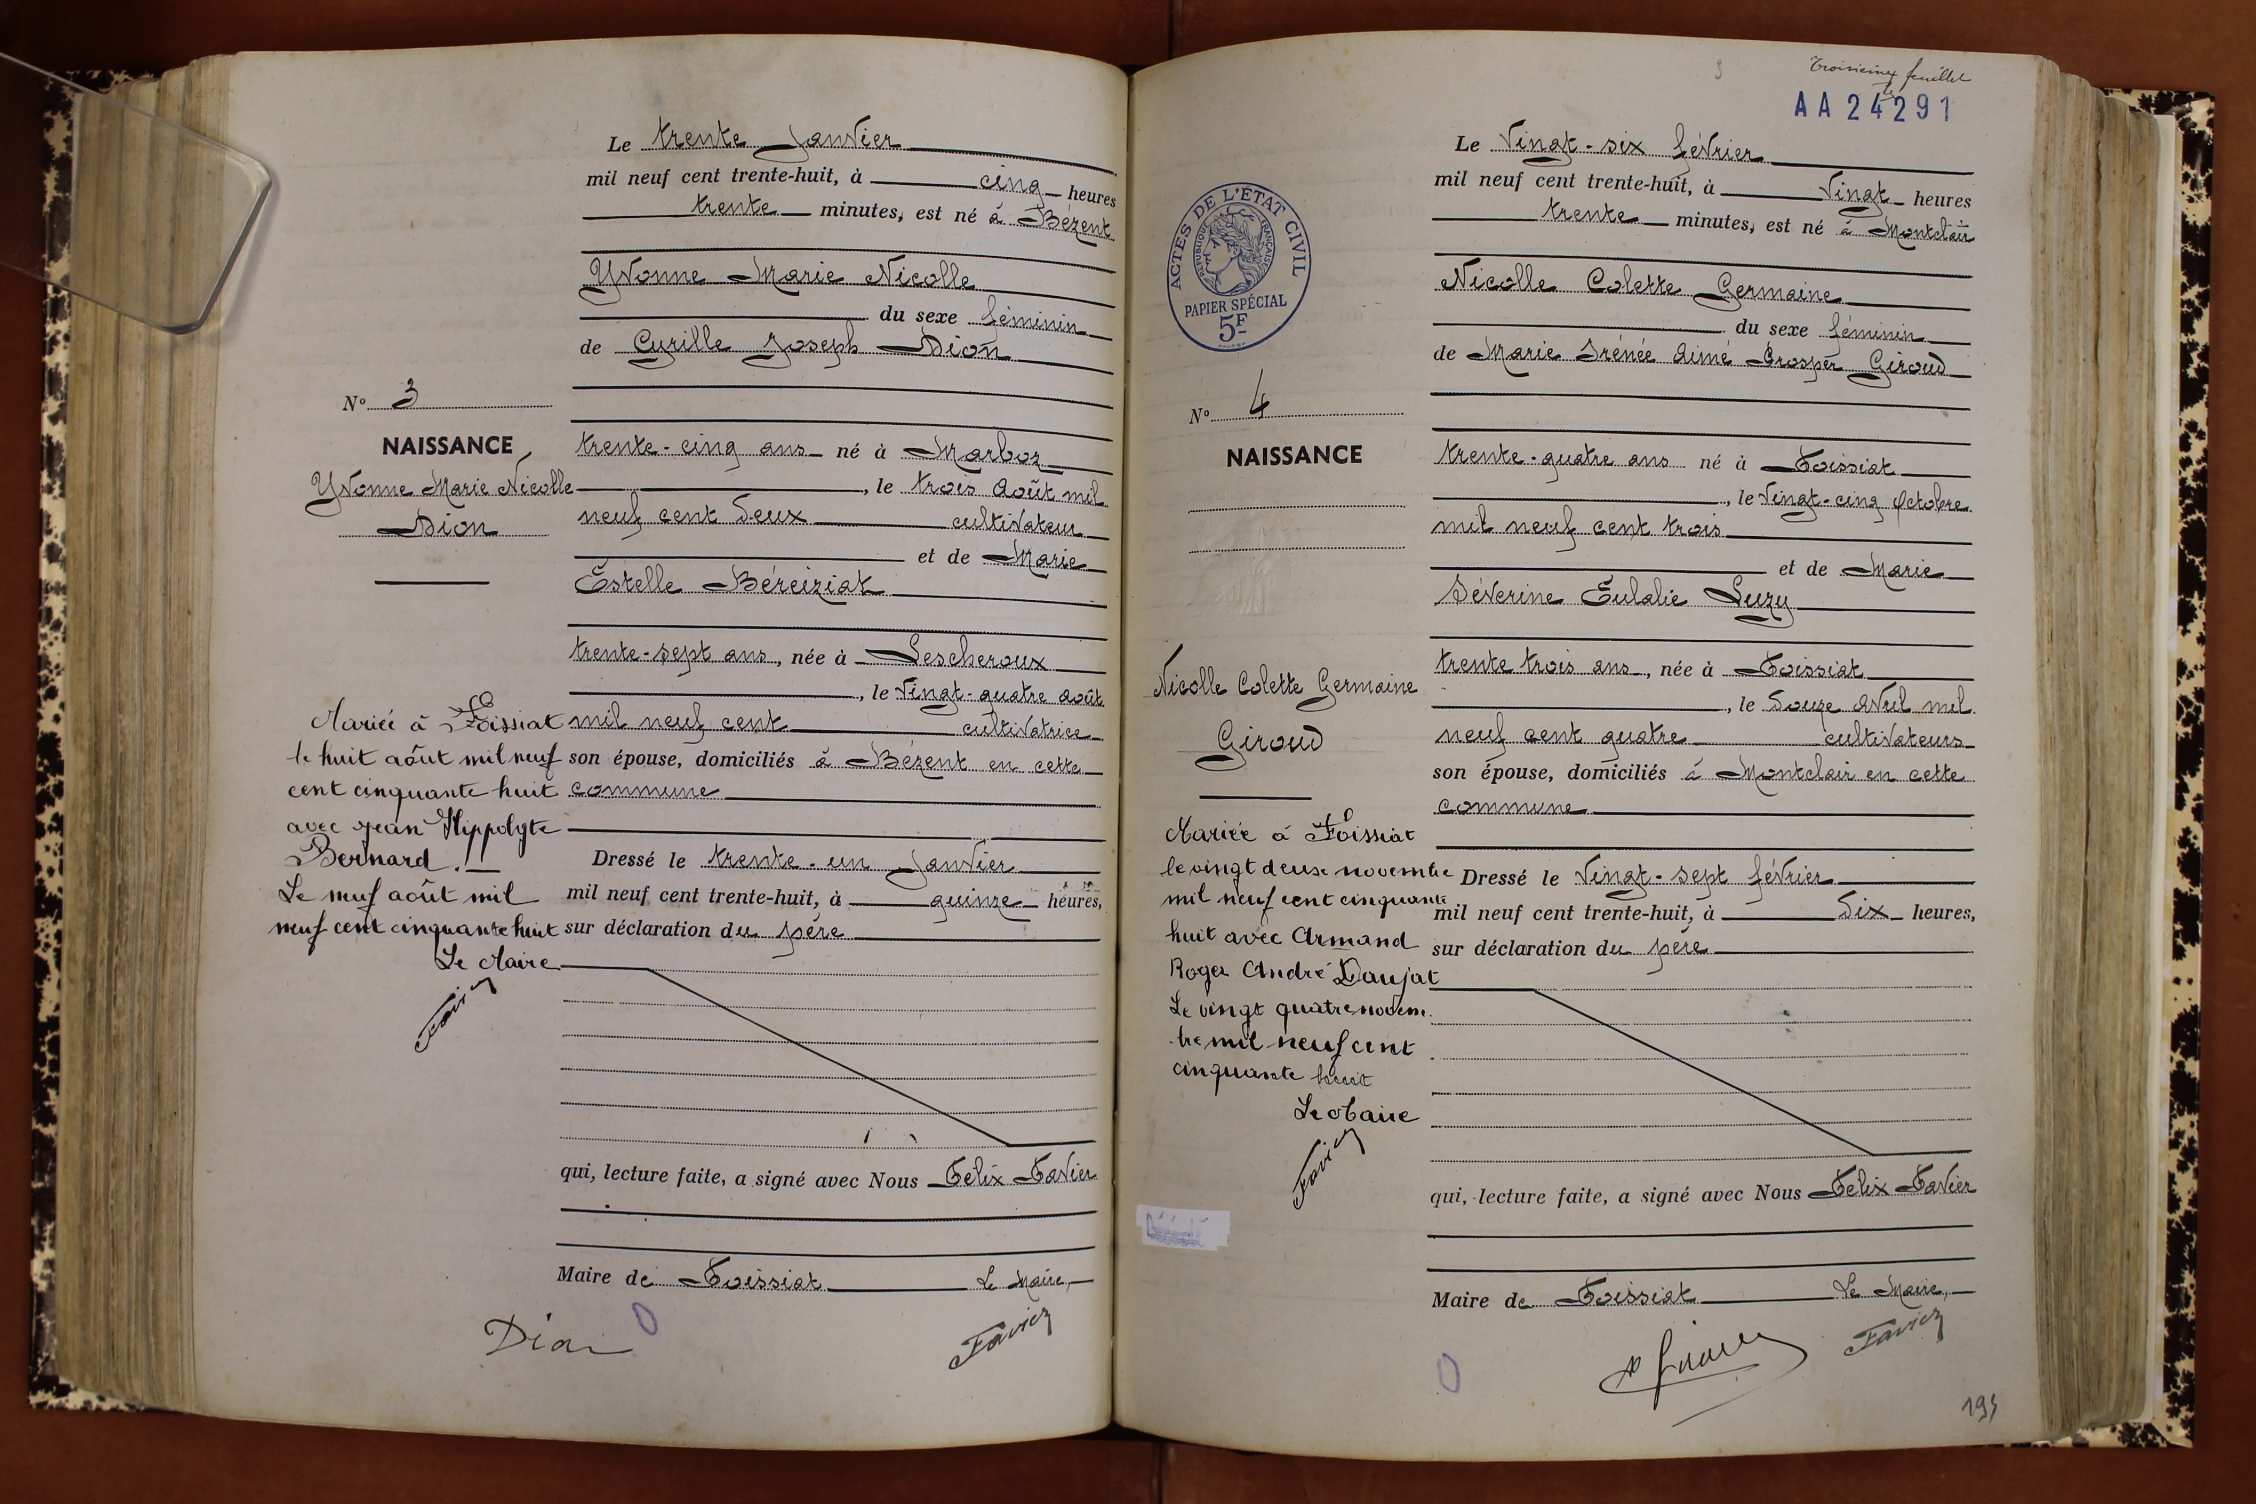 Le trente Janvier
mil neuf cent trente-huit, à cinq heures
trente minutes, est né à Bézent
Yvonne Marie Nicolle
du sexe féminin
de Cyrille Joseph Dion
N° 3
NAISSANCE
Yvonne Marie Nicolle
Dion
trente-cinq ans né à Marboz
, le trois Août mil
neuf cent deux cultivateur
et de Marie
Estelle Béreiziat
trente-sept ans, née à Lescheroux
, le vingt-quatre août
mil neuf cent cultivatrice
son épouse, domiciliés à Bézent en cette
commune
Mariée à Foissiat
le huit août mil neuf
cent cinquante huit
avec Jean Hippolyte
Bernard.
Le neuf août mil
neuf cent cinquante huit
Le Maire
Favier
Dressé le trente-un Janvier
mil neuf cent trente-huit, à quinze heures,
sur déclaration du père
qui, lecture faite, a signé avec Nous Félix Favier
Maire de Foissiat Le Maire,
Dion
Favier
troisième feuillet
AA24291
Le Vingt-six février
mil neuf cent trente-huit, à Vingt heures
trente minutes, est né à Montclair
Nicolle Colette Germaine
du sexe féminin
de Marie Irénée Aimé Prosper Giroud
ACTES DE L'ÉTAT CIVIL
RÉPUBLIQUE FRANÇAISE
PAPIER SPÉCIAL
5F
N° 4
NAISSANCE
Nicolle Colette Germaine
Giroud
trente-quatre ans né à Foissiat
, le Vingt-cinq Octobre
mil neuf cent trois
et de Marie
Séverine Eulalie Luzy
trente trois ans, née à Foissiat
, le douze Avril mil
neuf cent quatre cultivateurs
son épouse, domiciliés à Montclair en cette
commune
Mariée à Foissiat
le vingt deux novembre
mil neuf cent cinquante
huit avec Armand
Roger André Daujat
Le vingt quatre novem
bre mil neuf cent
cinquante huit
Le Maire
Favier
Dressé le Vingt-sept février
mil neuf cent trente-huit, à dix heures,
sur déclaration du père
qui, lecture faite, a signé avec Nous Félix Favier
Maire de Foissiat Le Maire,
Favier